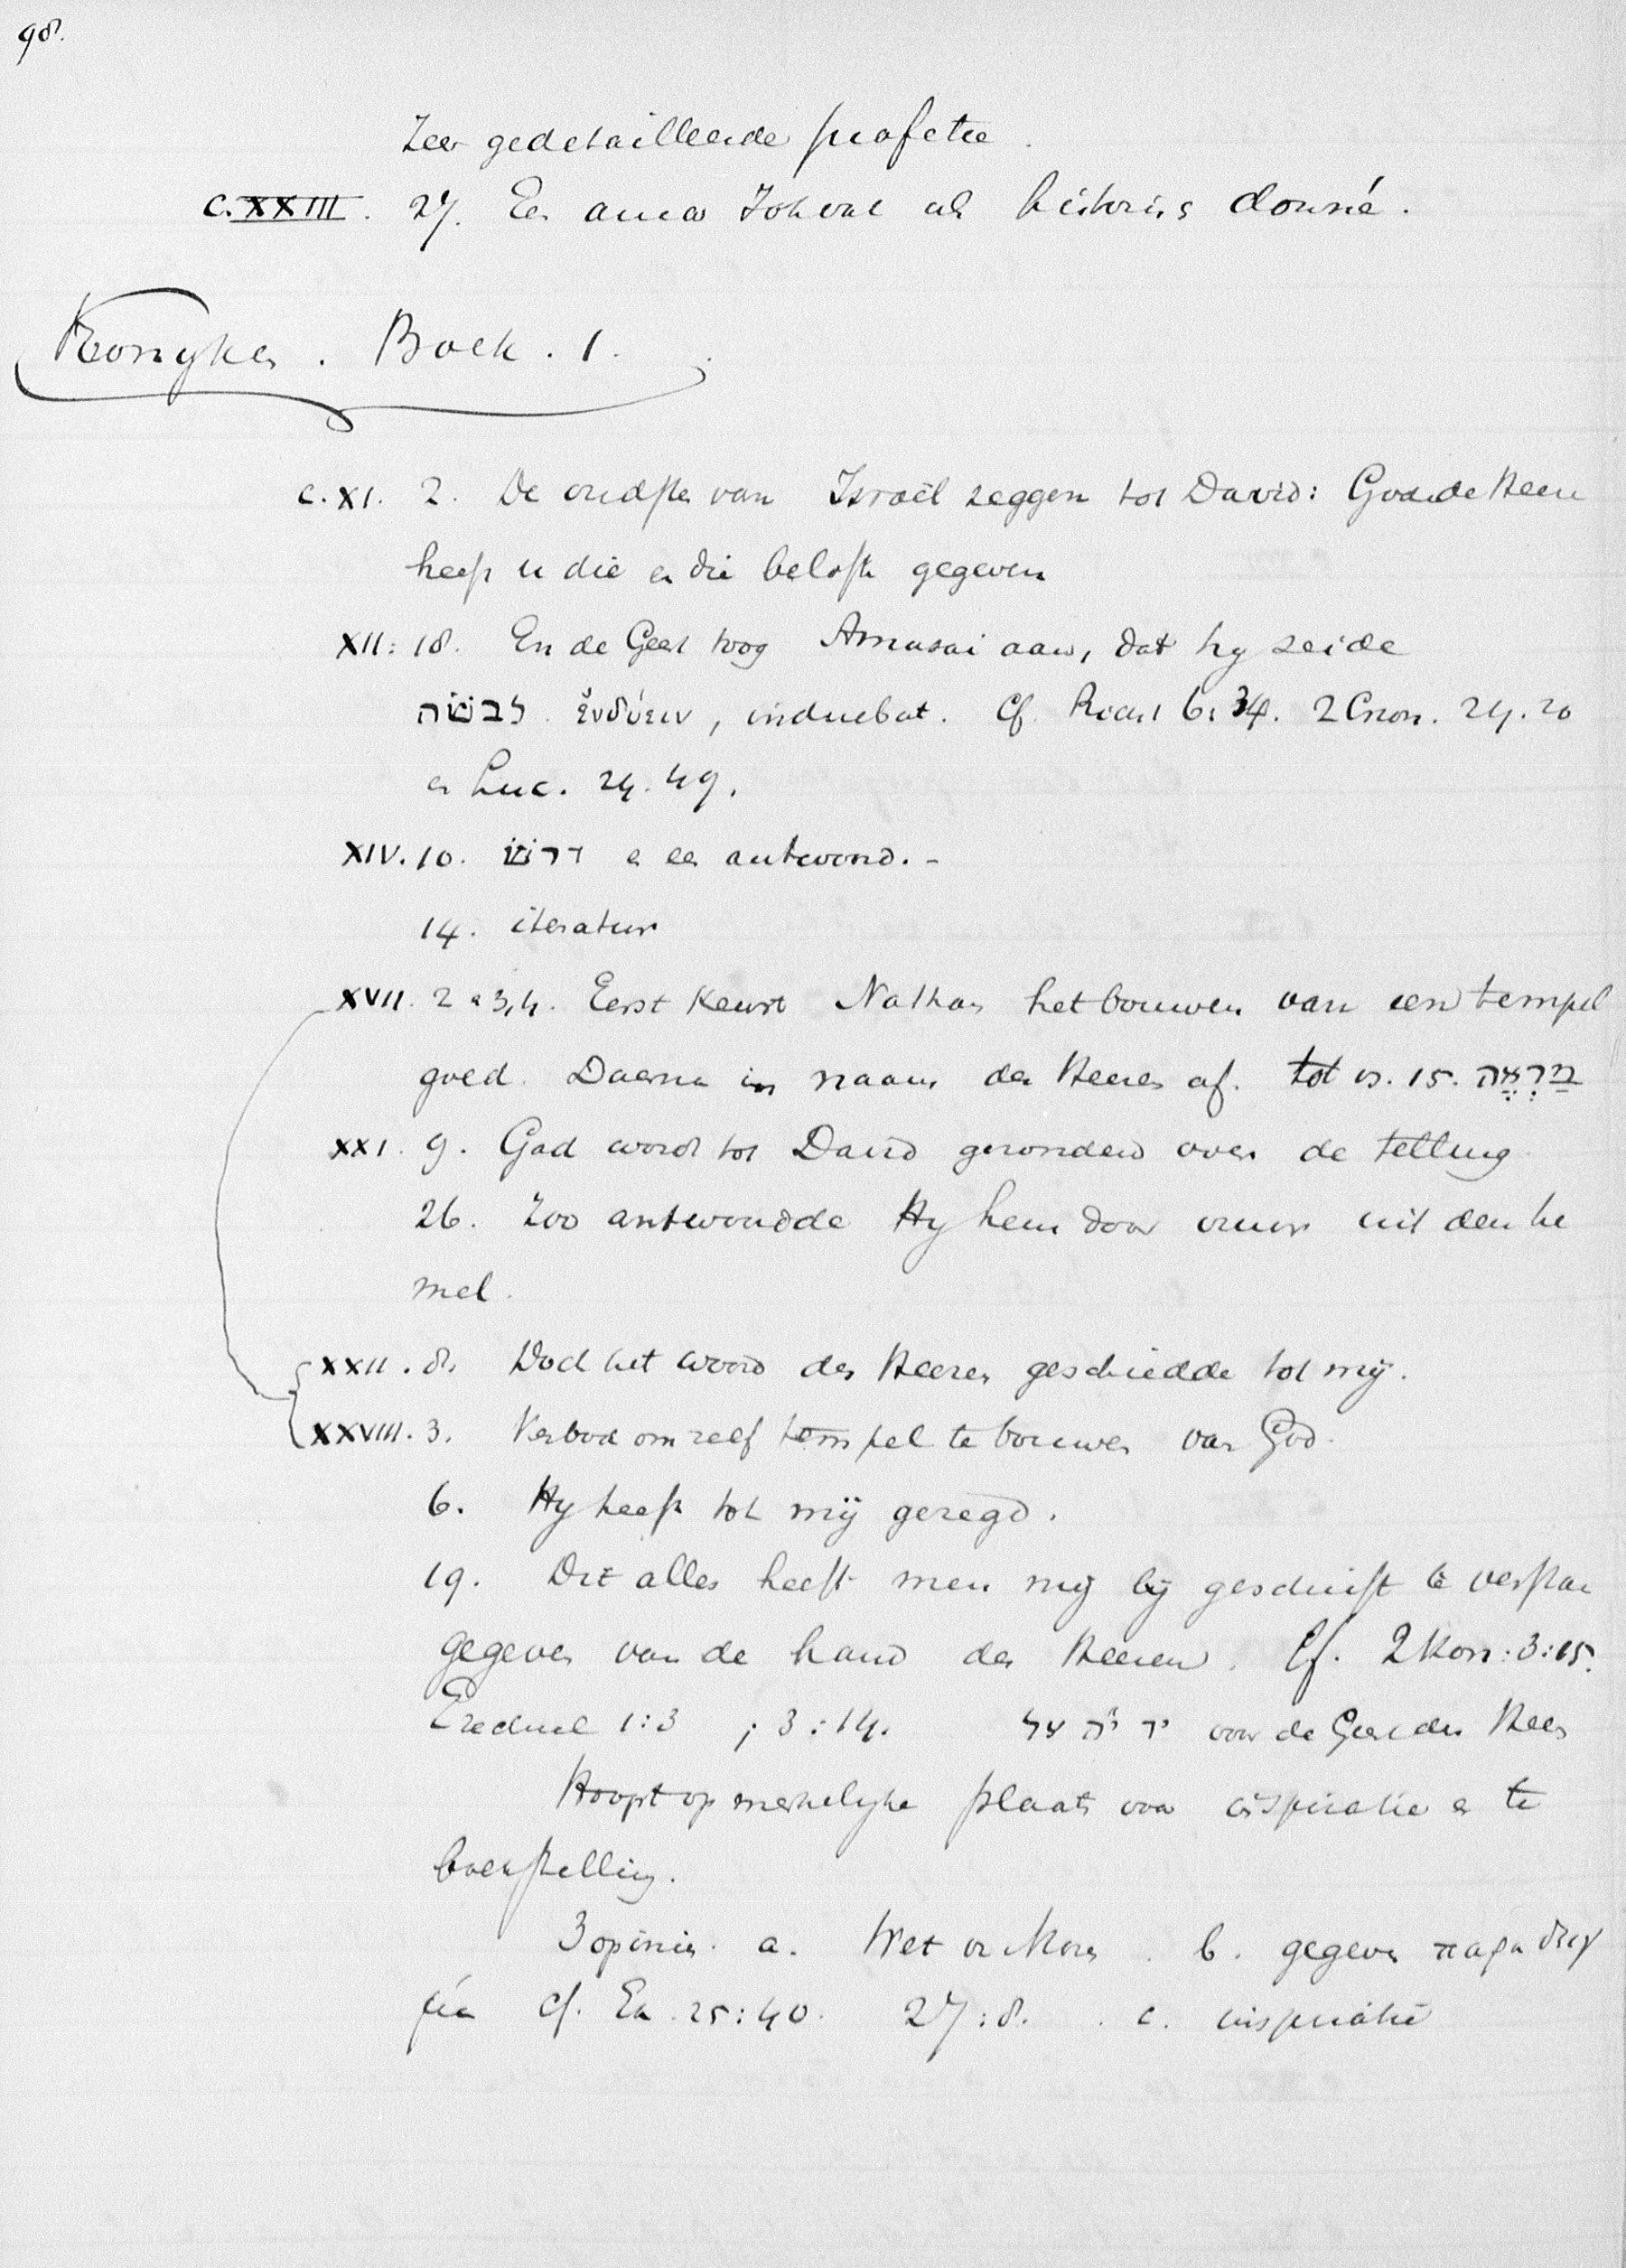 98.
Zeer gedetailleerde profetie.
C. XXIII. 27. Een amen Johvae als historisch donné.
Koningen. Boek. 1.
c. XI. 2. De oudsten van Israël zeggen tot David: God de Heere
heeft u die en die belofte gegeven
XII: 18. En de Geest toog Amasai aan, dat hy zeide
לבשׁה. ἐνδύειν, induebat. Cf. Richt 6: 34. 2 Cron. 24. 20
en Luc. 24. 49.
XIV. 10. דרשׁ en een antwoord. -
14. iteratur
XVII. 2 en 3, 4. Eerst keurt Nathan het bouwen van een tempel
goed. Daarna in naam des Heeren af. tot vs. 15.
XXI. 9. Gad wordt tot David gezonden over de telling
26. Zoo antwoordde Hy hem door vuur uit den he
mel.
XXII. 8. Doch het woord des Heeren geschiedde tot mij.
XXVIII. 3. Verbod om zelf tempel te bouwen van God.
6. Hy heeft tot mij gezegd.
19. Dit alles heeft men mij bij geschrift te verstaan
gegeven van de hand des Heeren. Cf. 2 Kon: 3: 15.
Ezechiel 1: 3 ; 3: 14. יד יה על voor de Geest des Heeren
Hoogst opmerkelyke plaats voor inspiratie en te
boekstelling.
3 opinies. a. Wet v. Mozes. b. gegeven παραδειγ
μα cf. Ex. 25: 40. 27: 8. c. inspiratie